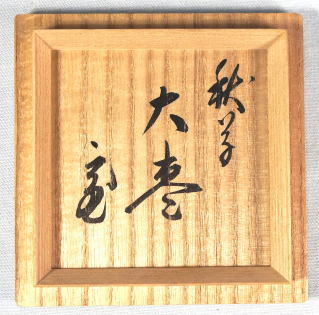 秋草
大棗